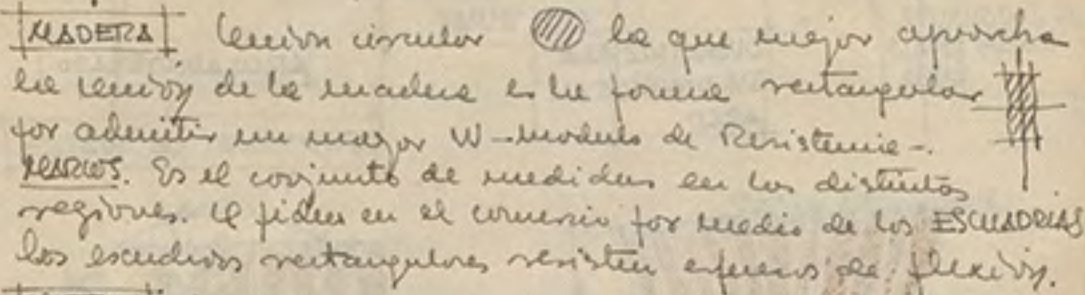 MADERA Sección circular la que mejor aprovecha
la sección de la madera es la forma rectangular
por admitir un mayor W-modulo de Resistencia-.
MARCOS. Es el conjunto de medidas en las distintas
regiones. Se piden en el comercio por medio de las ESCUADRIAS
las escuadrias rectangulares resisten esfuerzos de flexión.